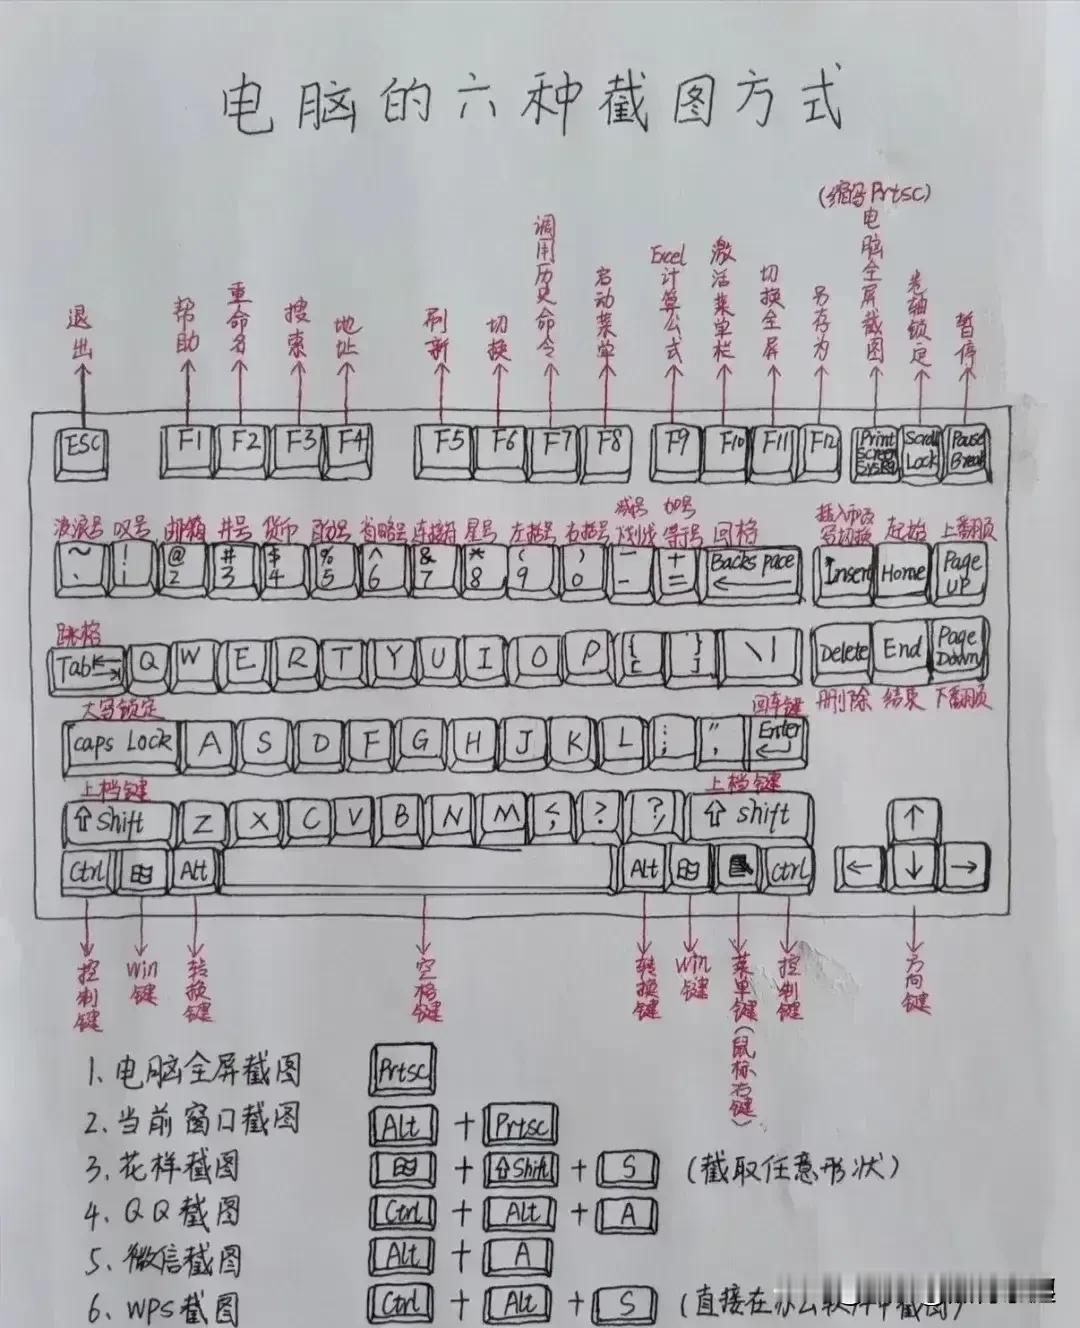 电脑的六种截图方式
(缩写Prtsc)
退出
帮助
重命名
搜索
地址
刷新
切换
调用历史命令
启动菜单
Excel计算公式
激活菜单栏
切换全屏
另存为
电脑全屏截图
卷轴锁定
暂停
ESC F1 F2 F3 F4 F5 F6 F7 F8 F9 F10 F11 F12 Print Screen SysRq Scroll Lock Pause Break
波浪号 叹号 邮箱 井号 货币 百分号 省略号 连接符 星号 左括号 右括号 减号 下划线 加号 等号 回格 起始 上翻页
~ ` ! 1 @ 2 # 3 $ 4 % 5 ^ 6 & 7 * 8 ( 9 ) 0 — - + = Backspace Insert Home Page UP
跳格
Tab Q W E R T Y U I O P { [ } ] \ | Delete End Page Down
大写锁定 回车键 删除 结束 下翻页
caps Lock A S D F G H J K L : ; " , Enter
上档键 上档键
⇧ shift Z X C V B N M < , ? . ? / ⇧ shift ↑
Ctrl Alt Alt Ctrl ← ↓ →
控制键
Win键
转换键
空格键
转换键
Win键
菜单键(鼠标右键)
控制键
方向键
1、电脑全屏截图 Prtsc
2、当前窗口截图 Alt + Prtsc
3、花样截图 + ⇧Shift + S (截取任意形状)
4、QQ截图 Ctrl + Alt + A
5、微信截图 Alt + A
6、WPS截图 Ctrl + Alt + S (直接在办公软件中截图)